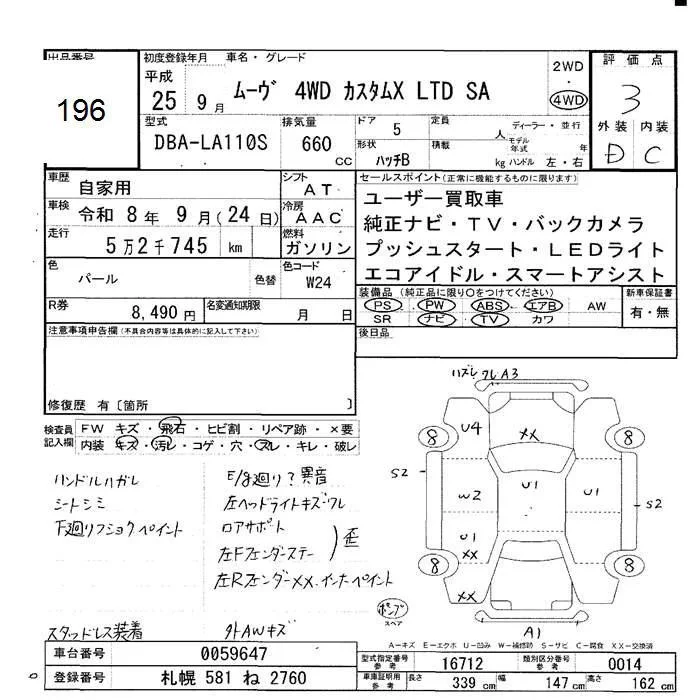 出品番号 初度登録年月 車名・グレード 2WD 評価点
196 平成 25 9月 ムーヴ 4WD カスタムX LTD SA ・ 4WD 3
型式 排気量 ドア 5 定員 人 ディーラー・並行 外装 内装
DBA-LA110S 660 CC 形状 ハッチB 積載 kg モデル年式 年 ハンドル 左・右 D C
車歴 自家用 シフト AT セールスポイント(正常に機能するものに限ります)
車検 令和 8年 9月(24日) 冷房 AAC ユーザー買取車
走行 5万2千745 km 燃料 ガソリン 純正ナビ・TV・バックカメラ
プッシュスタート・LEDライト
色 パール 色替 色コード W24 エコアイドル・スマートアシスト
R券 8,490円 名変通知期限 月 日 装備品(純正品に限り○をつけてください) 新車保証書
PS PW ABS エアB AW 有・無
SR ナビ TV カワ
注意事項申告欄(不具合内容等は具体的に記入して下さい) 後日品
修復歴 有〔箇所 〕
検査員記入欄 FW キズ・飛石・ヒビ割・リペア跡・×要
内装 キズ・汚レ・コゲ・穴・スレ・キレ・破レ
ハンドルハガレ
シートシミ
下廻りフショクペイント
E/g廻り?異音
左ヘッドライトキズ・ワレ
ロアサポート
左Fフェンダーステー
歪
左Rフェンダーxx.インナーペイント
スタッドレス装着 外AWキズ
ハズレ ワレA3
8 U4 XX 8
S2 W2 U1 U1 S2
U1
XX
8 8
XX
ポンプ
スペア
A1
A-キズ E-エクボ U-凹み W-補修跡 S-サビ C-腐食 XX-交換済
車台番号 0059647 型式指定番号 参考 16712 類別区分番号 参考 0014
登録番号 札幌 581 ね 2760 車庫証明 参考 長さ 339 cm 幅 147 cm 高さ 162 cm